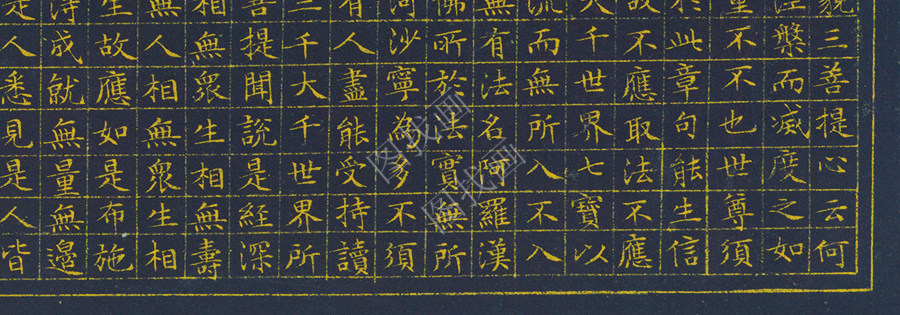 藐三善提心云何
涅槃而滅度之如
量不不也世尊須
於此章句能生信
故不應取法不應
大千世界七寶以
流而無所入不入
無有法名阿羅漢
佛所於法實無所
河沙寧為多不須
有人盡能受持讀
三千大千世界所
善提聞說是經深
相無眾生相無壽
無人相無眾生相
生故應如是布施
得成就無量無邊
是人悉見是人皆
图找画
图找画